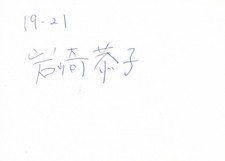 19-21
岩崎恭子